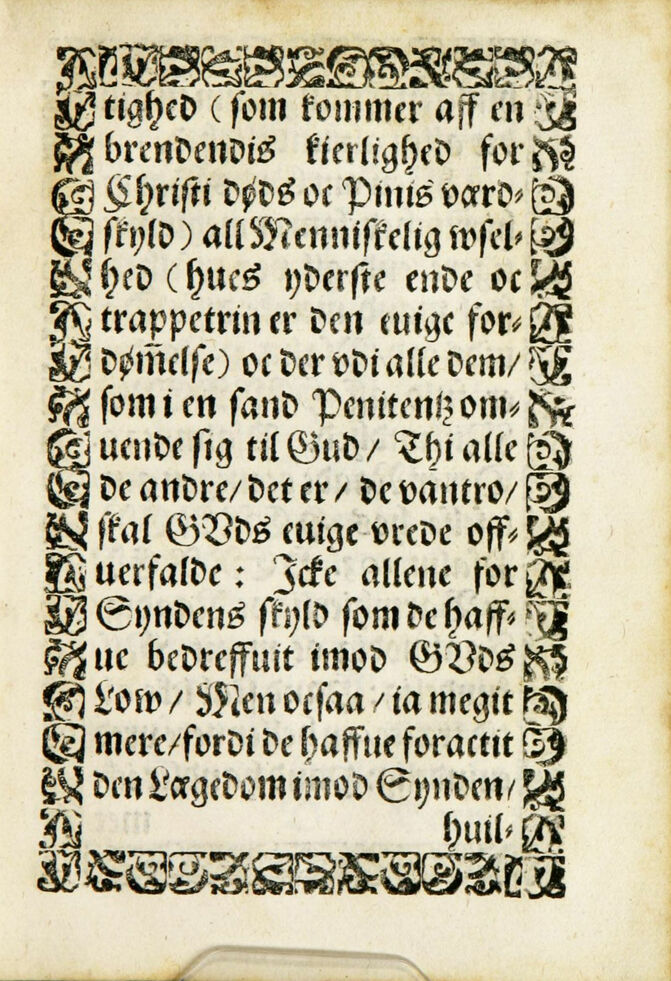 tighed (som kommer aff en
brendendis kierlighed for
Christi døds oc Pinis værd⸗
skyld) all Menniskelig wsel⸗
hed (hues yderste ende oc
trappetrin er den euige for⸗
døm̃else) oc der vdi alle dem/
som i en sand Penitentz om⸗
uende sig til Gud / Thi alle
de andre/ det er / de vantro/
skal GVds euige vrede off⸗
uerfalde : Icke allene for
Syndens skyld som de haff⸗
ue bedreffuit imod GVds
Low / Men ocsaa / ia megit
mere/ fordi de haffue foractit
den Lægedom imod Synden/
huil⸗